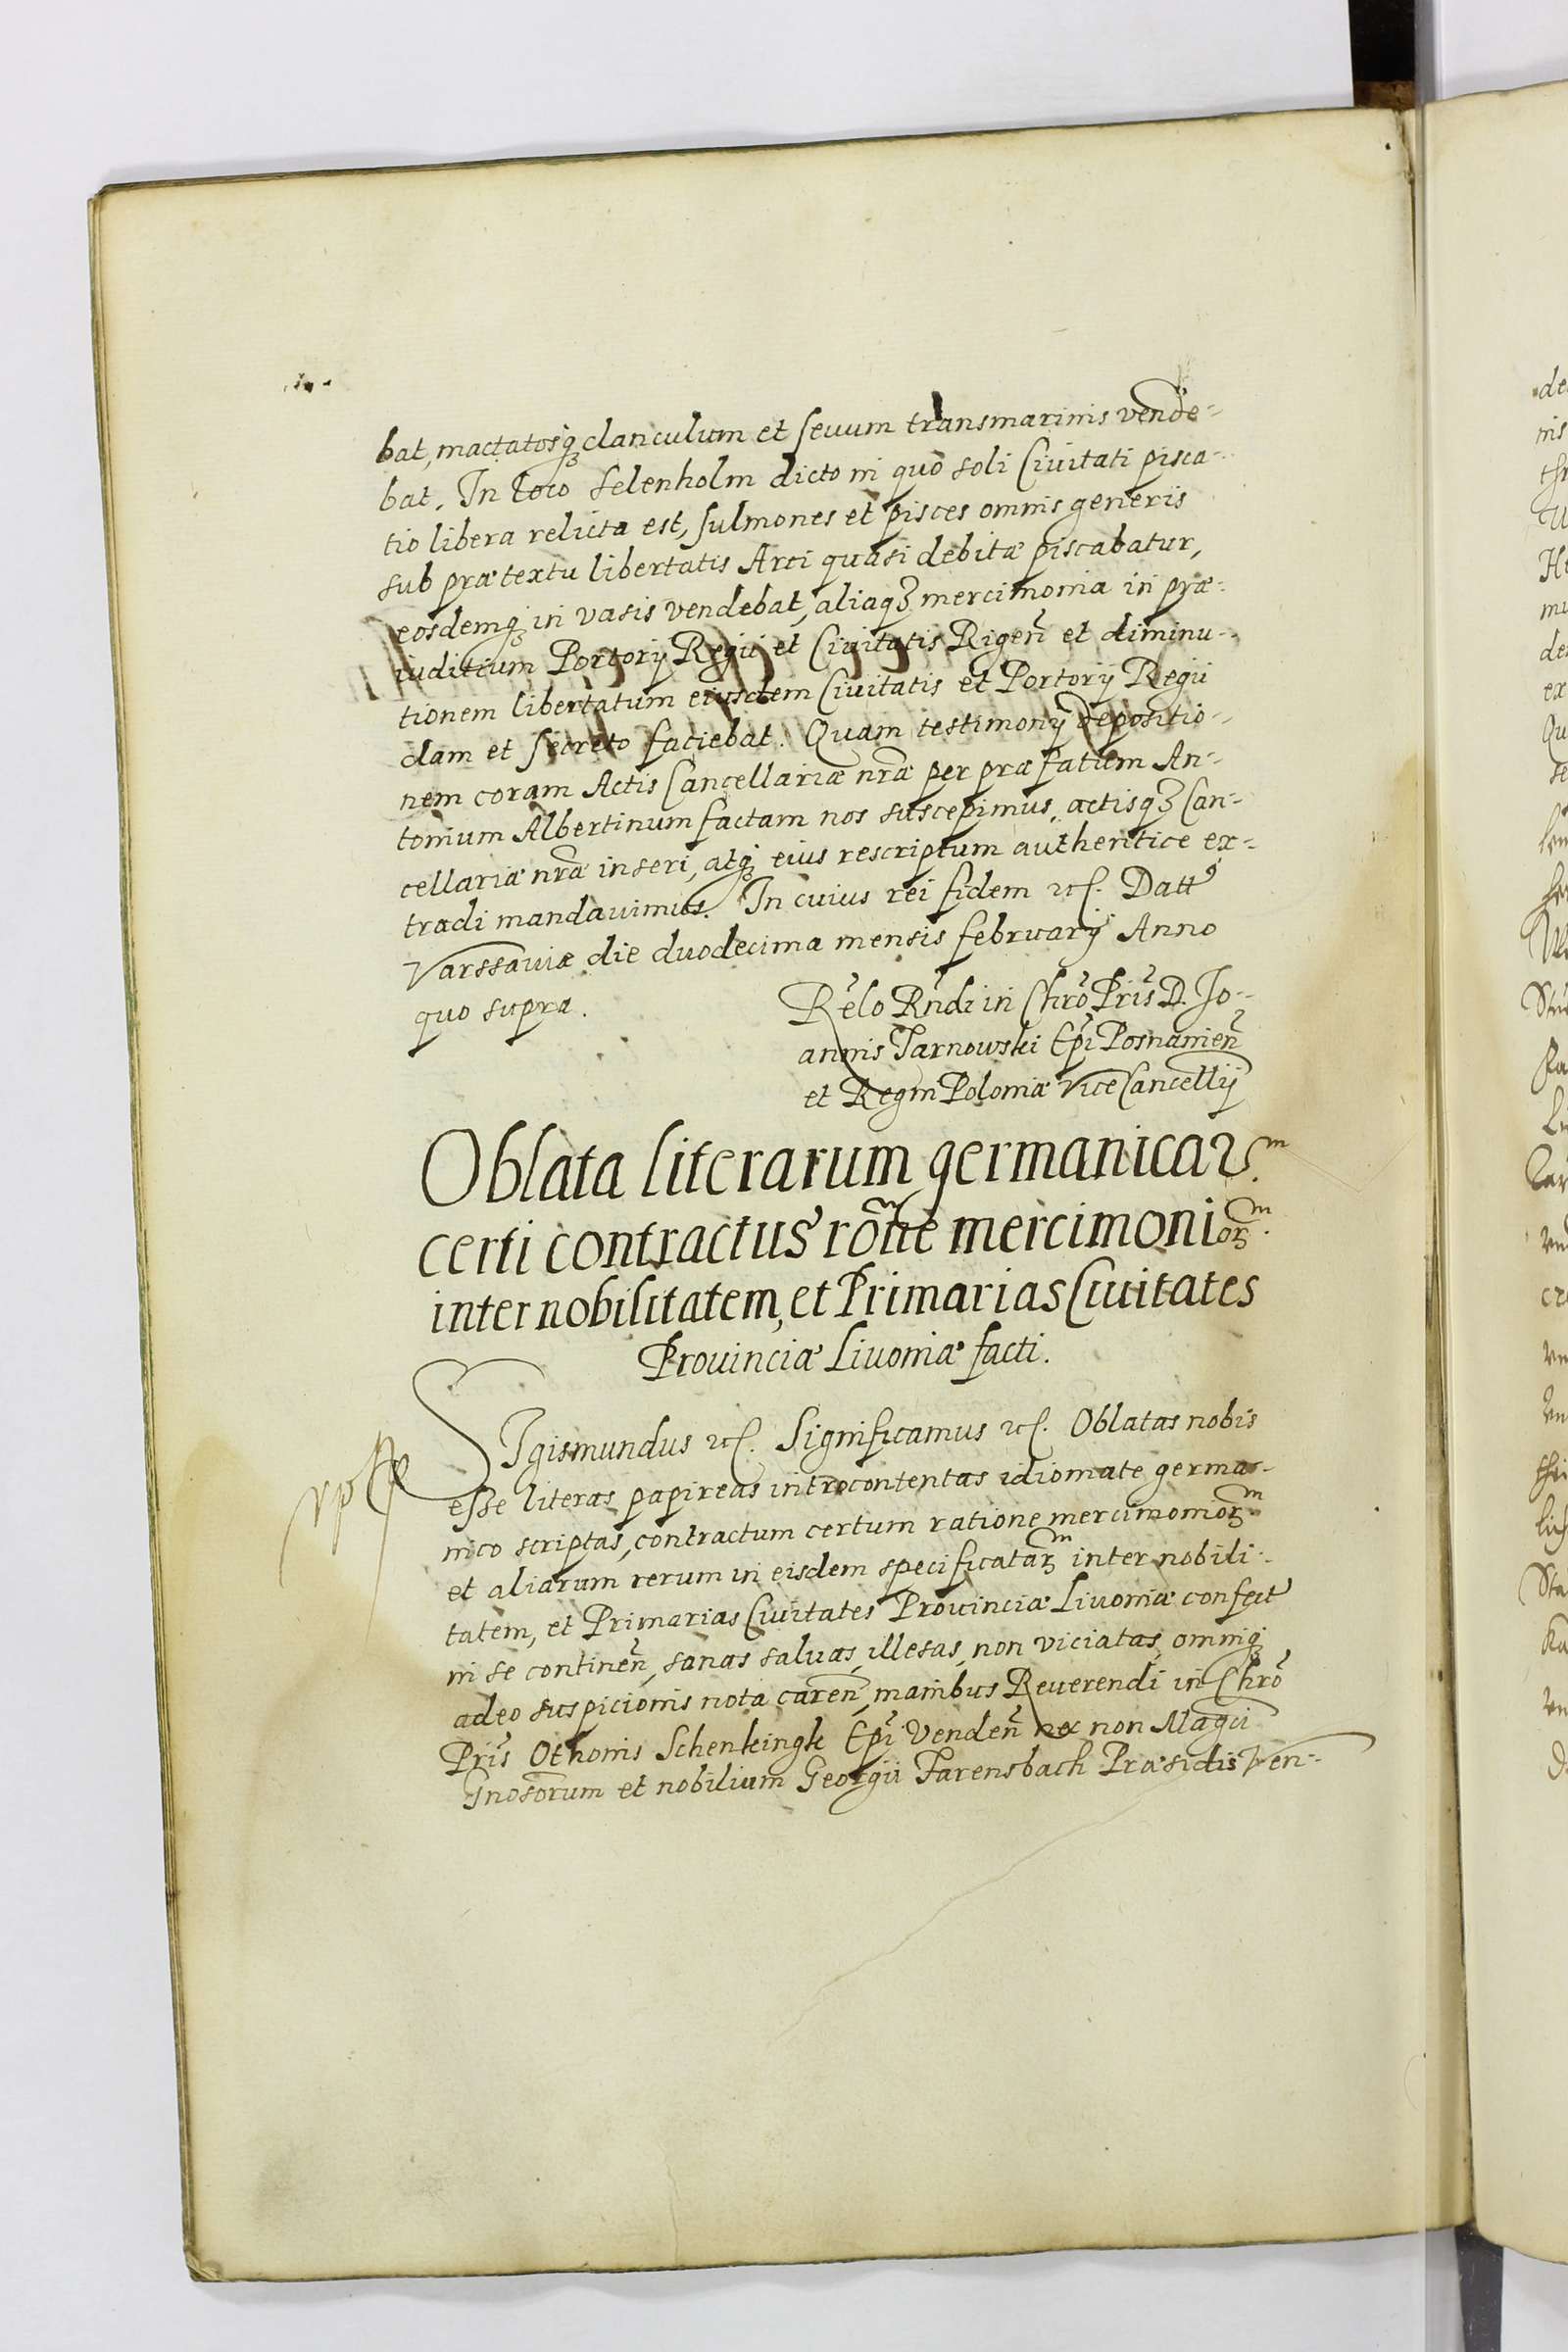 bat, mactatosq₃ clanculum et sevum transmarinis vende-
bat. In loco Selenholm dicto in quo soli Civitati pisca-
tio libera relicta est, sulmones et pisces omnis generis
sub prætextu libertatis Arci quasi debitæ piscabatur,
eosdemq₃ in vasis vendebat, aliaq₃ mercimonia in præ-
iuditium Portorij Regii et Civitatis Rigen̄ et diminu-
tionem libertatum eiusdem Civitatis et Portorij Regii
clam et secreto faciebat. Quam testimonij depositio-
nem coram Actis Cancellariæ nr̄æ per præfatum An-
tonium Albertinum factam nos suscepimus, actisq₃ Can-
cellariæ nr̄æ inseri, atq₃ eius rescriptum authentice ex-
tradi mandavimus. In cuius rei fidem etc. Datt
Varssaviæ die duodecima mensis february Anno
quo supra.
Rēlo Rn̄di in Chrō Prīs D. Jo-
annis Tarnowski Ep̄i Posnanien̄
et Regni Poloniæ ViceCancellij
Oblata literarum germanicar̄m
certi contractus rōne mercimonior̄m
inter nobilitatem, et Primarias Civitates
Provinciæ Livoniæ facti.
SIgismundus etc. Significamus etc. Oblatas nobis
esse literas papireas introcontentas idiomate germa-
nico scriptas, contractum certum ratione mercimonior̄m
et aliarum rerum in eisdem specificatar̄m inter nobili-
tatem, et Primarias Civitates Provinciæ Livoniæ confect
in se continen̄, sanas salvas, illesas, non viciatas, omniq₃
adeo suspicionis nota caren̄, manibus Reverendi in Chrō
Prīs Othonis Schenkingk Ep̄i Venden̄ nec non Magcii
Gnosorum et nobilium Georgii Farensbach Præsidis Ven-